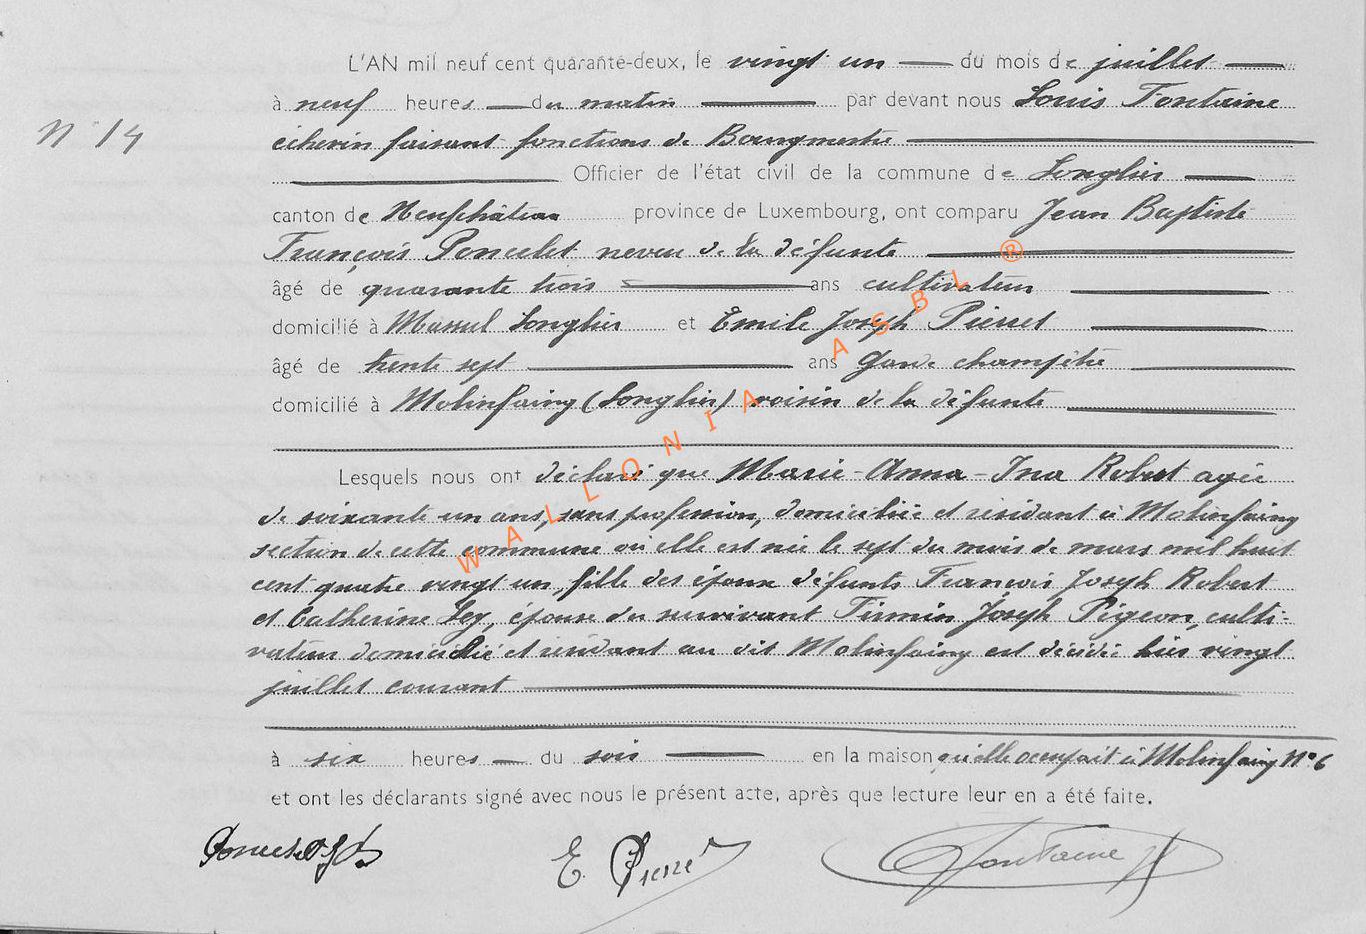 L'AN mil neuf cent quarante-deux, le vingt un du mois de juillet
à neuf heures du matin par devant nous Louis Fontaine
N° 14
échevin faisant fonctions de Bourgmestre
Officier de l'état civil de la commune de Longlier
canton de Neufchâteau province de Luxembourg, ont comparu Jean Baptiste
François Poncelet neveu de la défunte
âgé de quarante trois ans cultivateur
domicilié à Massul Longlier et Emile Joseph Pierret
âgé de trente sept ans Garde champêtre
domicilié à Molinfaing (Longlier) voisin de la défunte
Lesquels nous ont déclaré que Marie-Anna-Ina Robert agée
de soixante un ans, sans profession, domiciliée et résidant à Molinfaing
section de cette commune où elle est née le sept du mois de mars mil huit
cent quatre vingt un, fille des époux défunts François Joseph Robert
et Catherine, épouse du survivant Firmin Joseph Pigeon, culti-
vateur domicilié et résidant au dit Molinfaing est décédée hier vingt
juillet courant
à six heures du soir en la maison qu'elle occupait à Molinfaing N° 6
et ont les déclarants signé avec nous le présent acte, après que lecture leur en a été faite.
E. Pierret Fontaine
WALLONIA ASBL ®